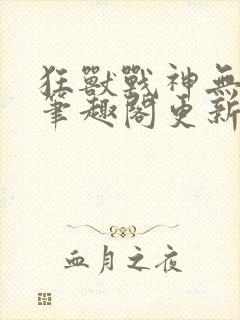 狂獸戰神無
筆趣閣更新
血月之夜